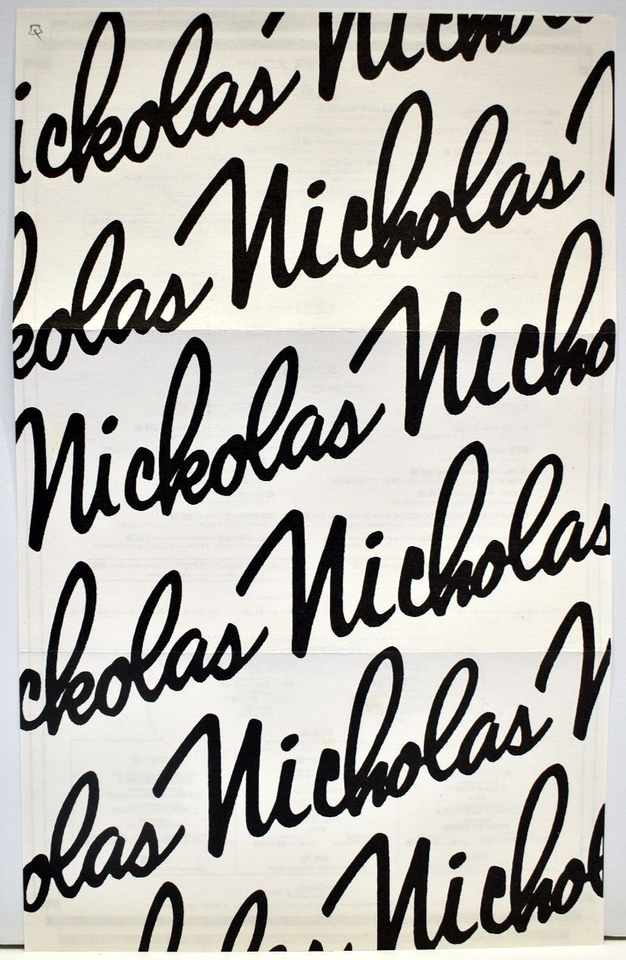 ickolas Nicho
kolas Nicholas N
Nickolas Nicho
ckolas Nicholas
olas Nicholas N
Nichol